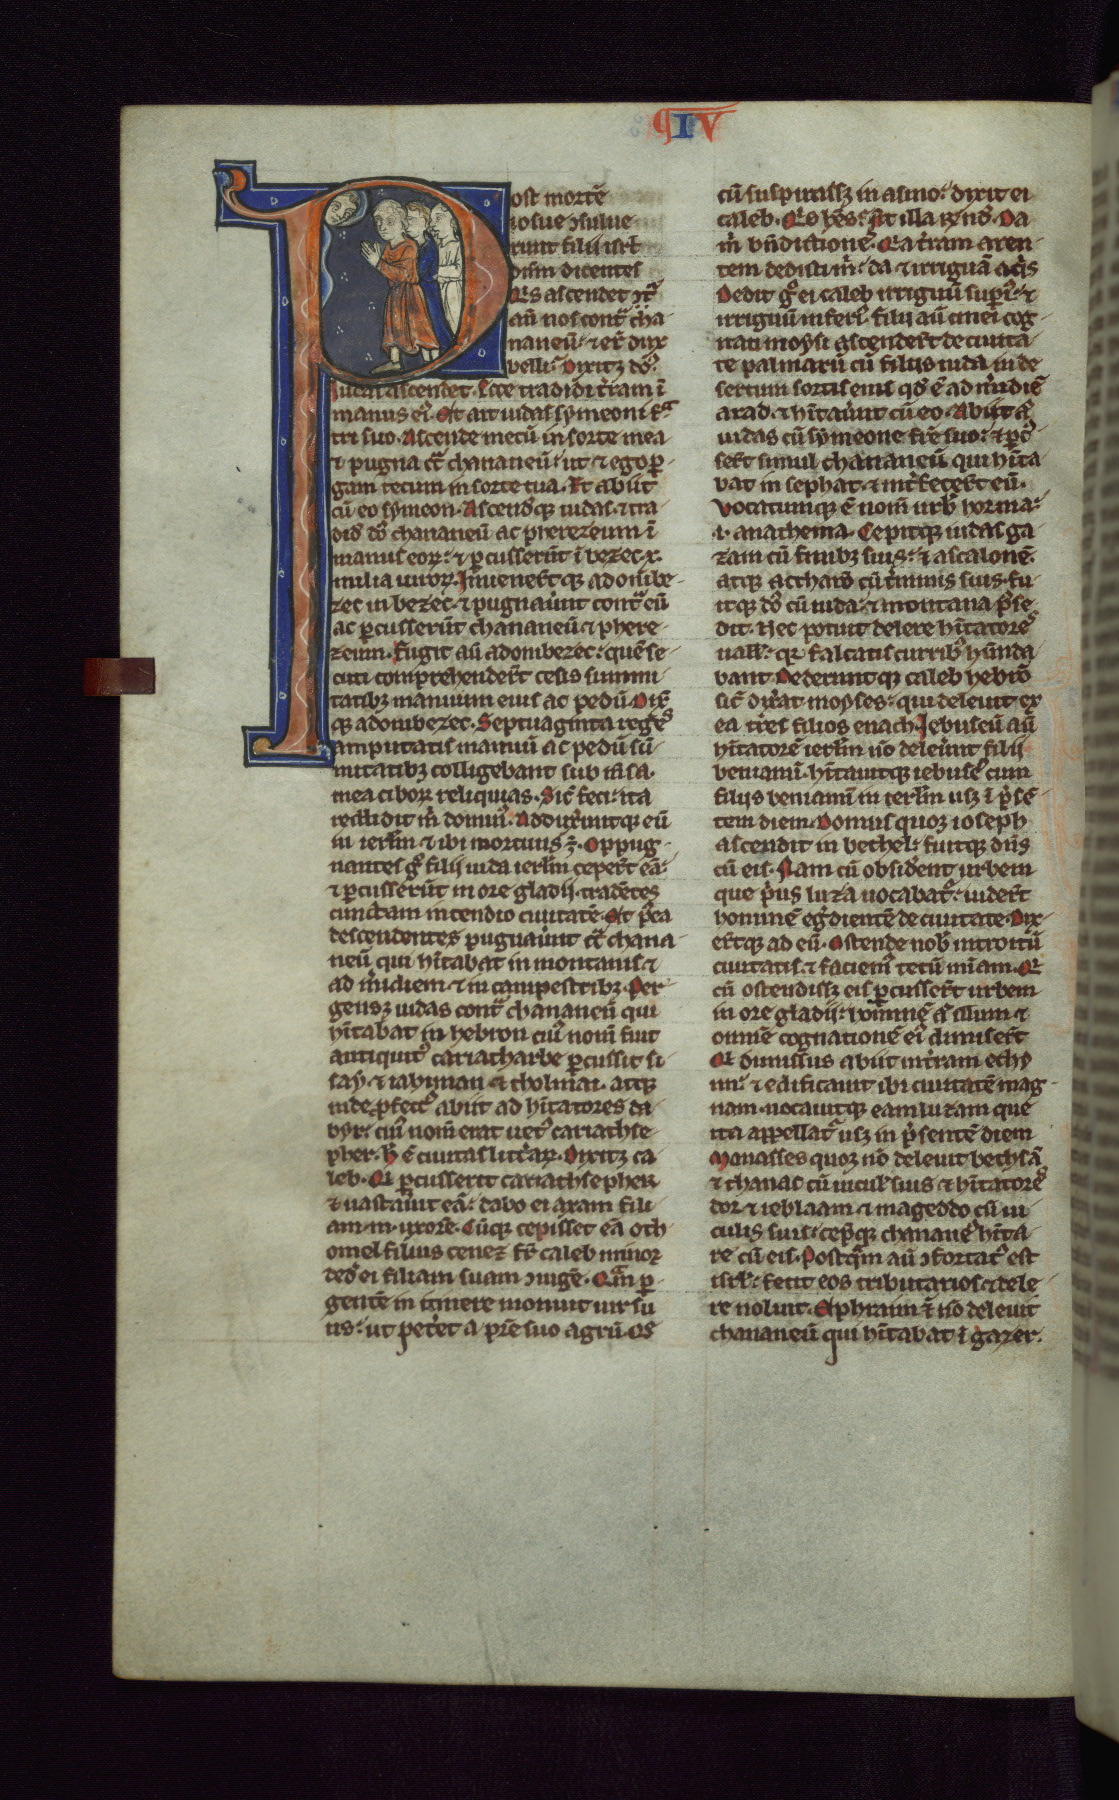 IV
Post morté
iosue ↄsulue
runt filii isrl̄
dn̄m dicentes
Qͥs ascendet añ
aū nos contͣ cha
naneū· ⁊ er̄ dux
belli· Dixitqꝫ dn̄s
Iudas ascendet. Ecce tradidi t̄ram ī
manus eiꝰ· Et ait iudas sẏmeoni fͣ
tri suo. Ascende mecū in sorte mea
⁊ pugna cͣt̄ chananeū· ut ⁊ ego ꝑ
gam tecum in sorte tua. Et abiit
cū eo sẏmeon. Ascendͥtqꝫ iudas. ⁊ tra
did dn̄s chananeū ac pherezeum ī
manus eoꝝ· ⁊ ꝑcusserūt ī bezec .x.
milia uiroꝝ. Inueneřtqꝫ adonibe
zec in bezec. ⁊ pugnauer̄t contͣ eū
ac ꝑcusserūt chananeū ⁊ phere
zeum. Fugit aū adonibezec· quē se
cuti comprehender̄t cesis summi
tatibꝫ manuum eius ac pedū. Dix̄
qꝫ adonibezec. Septuaginta reges
amputatis manuū ac pedū sū
mitatibꝫ colligebant sub m̄sa
mea ciboꝝ reliquias. Sic̄ feci· ita
reddidit m̄ dominꝰ. Adduxer̄tqꝫ eū
in ierl̄m ⁊ ibi mortuus ē. Oppug
nantes gͦ filii iuda ierl̄m ceper̄t eā·
⁊ ꝑcusserūt in ore gladii. tradētes
cunctam incendio ciuitatē. Et p̄ea
descendentes pugnauer̄t cͣt̄ chana
neū qui hītabat in montanis. ⁊
ad m̄idiem ⁊ in campestribꝫ. Per
gensqꝫ iudas contͣ chananeū qui
hītabat in hebron cuiꝰ nom̄ fuit
antiquitꝰ cariatharbe ꝑcussit si
saẏ. ⁊ iahiman ⁊ tholmai. atqꝫ
inde ꝓfectꝰ abiit ad hītatores da
bẏr· cuiꝰ nom̄ erat uetꝰ cariathse
pher· h̄ ē ciuitas litt̄aꝝ. Dixitqꝫ ca
leb. Qi ꝑcusserit cariathsepher
⁊ uastauerit eā· dabo ei axam fili
am m̄ uxorē. Cūqꝫ cepisset eā oth
oniel filius cenez fr̄ caleb minor
dedͭ ei filiam suam ↄiugē. Qͣm ꝑ
gentē in itinere monuit uir su
us· ut peter̄et a pr̄e suo agrū. Qe
cū suspirassꝫ in asino· dixit ei
caleb. Qͥd hēs· At illa rn̄dͭ. Da
m̄ bn̄dictionē. Qͥa t̄ram aren
tem dedisti m̄· da ⁊ irriguā aqͥs
Dedit gͦ ei caleb irriguū supiꝰ· ⁊
irriguū inferiꝰ. filii aū cinei cog
nati moẏsi ascender̄t de ciuita
te palmarū cū filiis iuda in de
sertum sortis eius qd̄ ē ad m̄idiē
arad. ⁊ hītauer̄t cū eo. Abiit aū
iudas cū sẏmeone fr̄e suo· ⁊ ꝑcꝰ
ser̄t simul chananeū qui hīta
bat in sephat. ⁊ int̄fecer̄t eū.
Vocatumqꝫ ē nom̄ urbꝰ horma·
.i. anathema. Cepitqꝫ iudas ga
zam cū finibꝫ suis· ⁊ ascalonē.
atqꝫ accharō cū t̄minis suis. fu
itqꝫ dn̄s cū iuda· ⁊ montana posse
dit. Nec potuit delere hītatoreˢ
uall̄· qꝛ falcatis curribꝰ habūda
bant. Dederuntqꝫ caleb hebrō
sic̄ dixerat moyses· qui deleuit ex
ea tres filios enach. Iebuseū aū
hītatorē ierl̄m nō deleuer̄t filii
beniamī. hītauitqꝫ iebusẽꝰ cum
filiis beniamī in ierl̄m usqꝫ ī p̄sē
tem diem. Domus quoqꝫ ioseph
ascendit in bethel· fuitqꝫ dn̄s
cū eis. Nam cū obsident urbem
que pͥus luza uocabatͬ· uider̄t
hominē eg̃dientē de ciuitate. Dix
er̄tqꝫ ad eū. Ostende nobͥ introitū
ciuitatis. ⁊ faciemꝰ tecū mīam. Qi
cū ostendissꝫ eis ꝑcusser̄t urbem
in ore gladii· hoīnē aū illum ⁊
omnē cognationē eiꝰ dimiser̄t
Qi dimissus abiit in t̄ram ethẏ
im· ⁊ edificauit ibi ciuitatē mag
nam. uocauitqꝫ eam luzam que
ita appellatͬ usqꝫ in p̄sentē diem
Manasses quoqꝫ nō deleuit bethsā
⁊ thanac cū uiculꝰ suis ⁊ hītatoreˢ
dor ⁊ ieblaam ⁊ mageddo cū ui
culis suis· cep̄qꝫ chananeꝰ hīta
re cū eis. Postqͣm aū ↄfortatꝰ est
isrl̄· fecit eos tributarios. ⁊ dele
re noluit. Ephraim ēt nō deleuit
chananeū qui hītabat ī gazer.